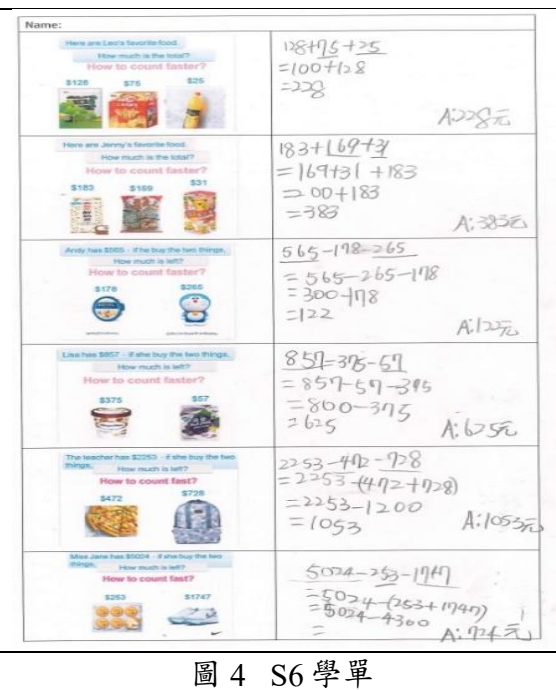 Name:
Here are Leo's favorite food.
How much is the total?
How to count faster?
$128 $75 $25
128+75+25
=100+128
=228
A:228元
Here are Jenny's favorite food.
How much is the total?
How to count faster?
$183 $169 $31
183+169+31
=169+31+183
=200+183
=383
A:383元
Andy has $565,if he buy the two things,
How much is left?
How to count faster?
$178 $265
565-178-265
=565-265-178
=300-178
=122
A:122元
Lisa has $857,if she buy the two things,
How much is left?
How to count faster?
$375 $57
857-375-57
=857-57-375
=800-375
=625
A:625元
The teacher has $2253,if she buy the two
things, How much is left?
How to count fast?
$472 $728
2253-472-728
=2253-(472+728)
=2253-1200
=1053
A:1053元
Miss Jane has $5024,if she buy the two
things, How much is left?
How to count fast?
$253 $1747
5024-253-1747
=5024-(253+1747)
=5024-4300
=
A:724元
圖 4 S6 學單